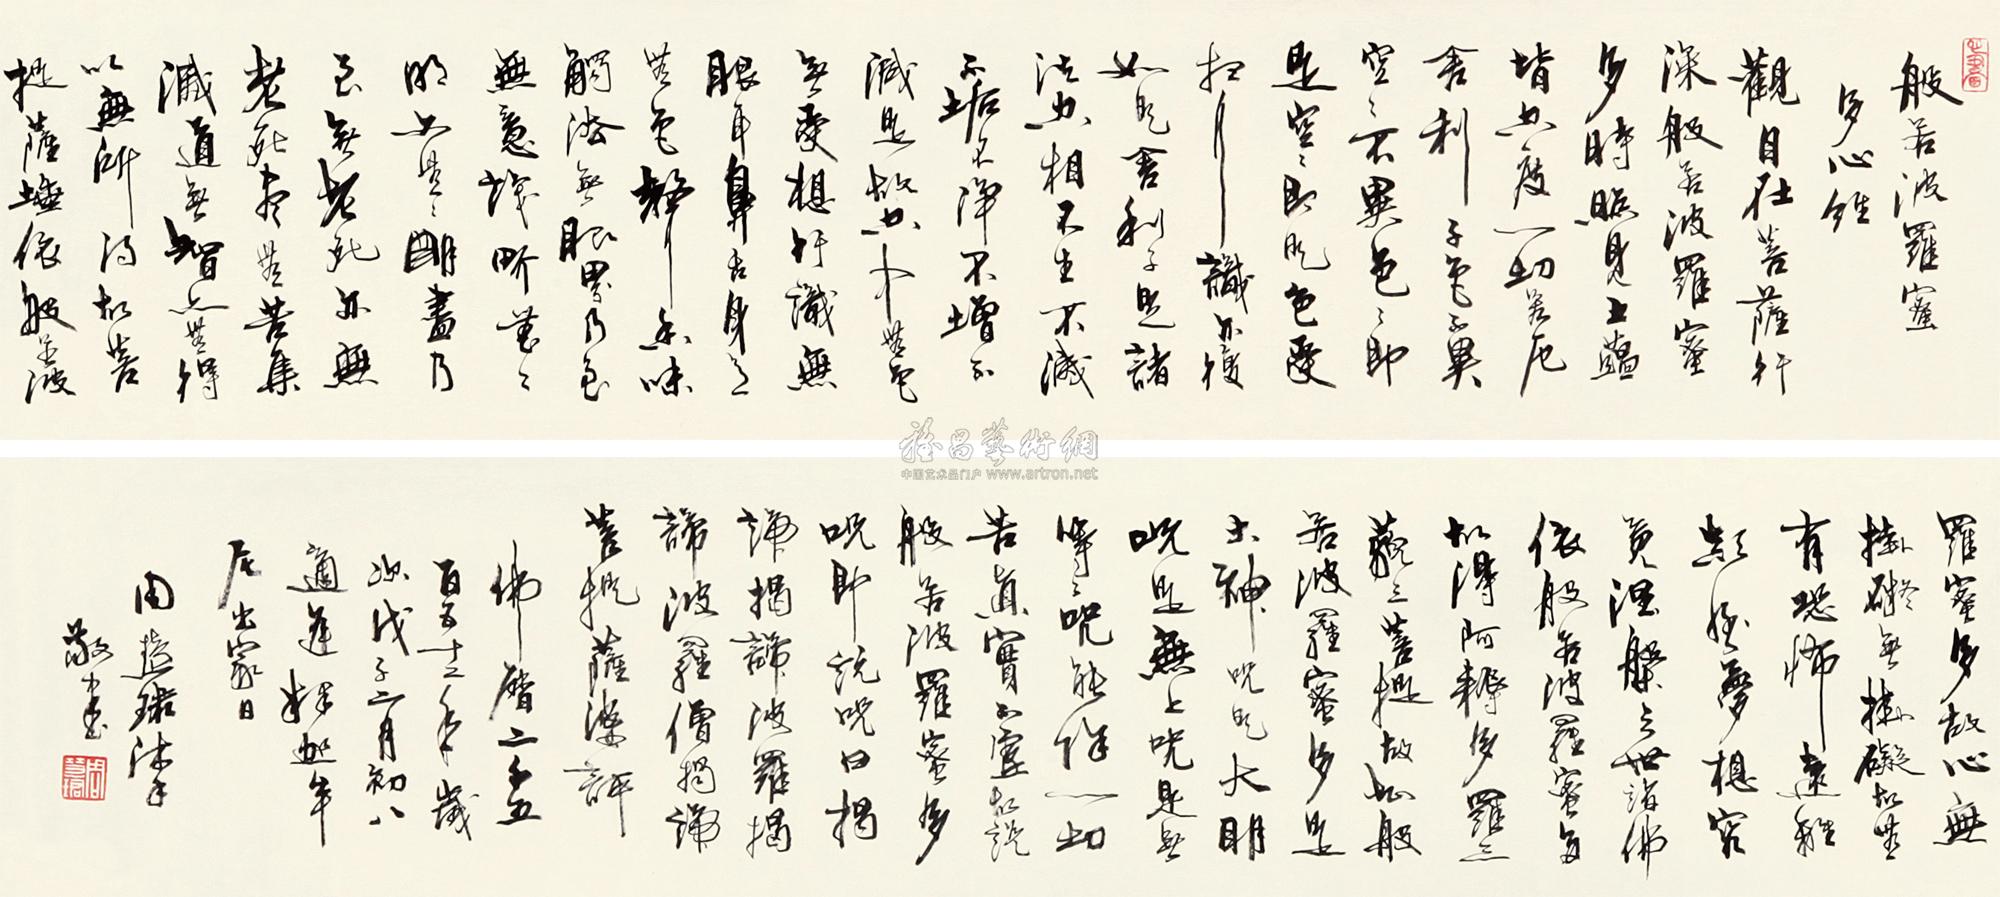 般若波羅蜜
多心經
觀自在菩薩行
深般若波羅蜜
多時照見五蘊
皆空度一切苦厄
舍利子色不異
空空不異色色即
是空空即是色受
想行識亦復
如是舍利子是諸
法空相不生不滅
不垢不淨不增不
減是故空中無色
無受想行識無
眼耳鼻舌身意
無色聲香味
觸法無眼界乃至
無意識界無無
明亦無無明盡乃
至無老死亦無
老死盡無苦集
滅道無智亦無得
以無所得故菩
提薩埵依般若波
羅蜜多故心無
掛礙無掛礙故無
有恐怖遠離
顛倒夢想究
竟涅槃三世諸佛
依般若波羅蜜多
故得阿耨多羅三
藐三菩提故知般
若波羅蜜多是
大神咒是大明
咒是無上咒是無
等等咒能除一切
苦真實不虛故說
般若波羅蜜多
咒即說咒曰揭
諦揭諦波羅揭
諦波羅僧揭諦
菩提薩婆訶
佛曆二千五
百五十二年歲
次戊子二月初八
適逢釋迦牟
尼出家日
周慧珺沐手
敬書
雅昌藝術網
中国艺术品门户 www.artron.net